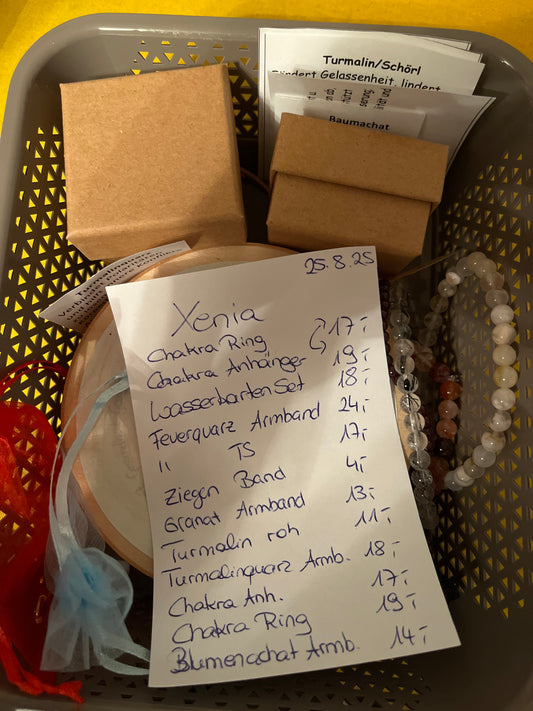 Turmalin/Schörl
Fördert Gelassenheit, lindert
Baumachat
25.8.25
Xenia
Chakra Ring 17,-
Chakra Anhänger 19,-
Wasserkarten Set 18,-
Feuerquarz Armband 24,-
" TS 17,-
Ziegen Band 4,-
Granat Armband 13,-
Turmalin roh 11,-
Turmalinquarz Armb. 18,-
Chakra Anh. 17,-
Chakra Ring 19,-
Blumenachat Armb. 14,-